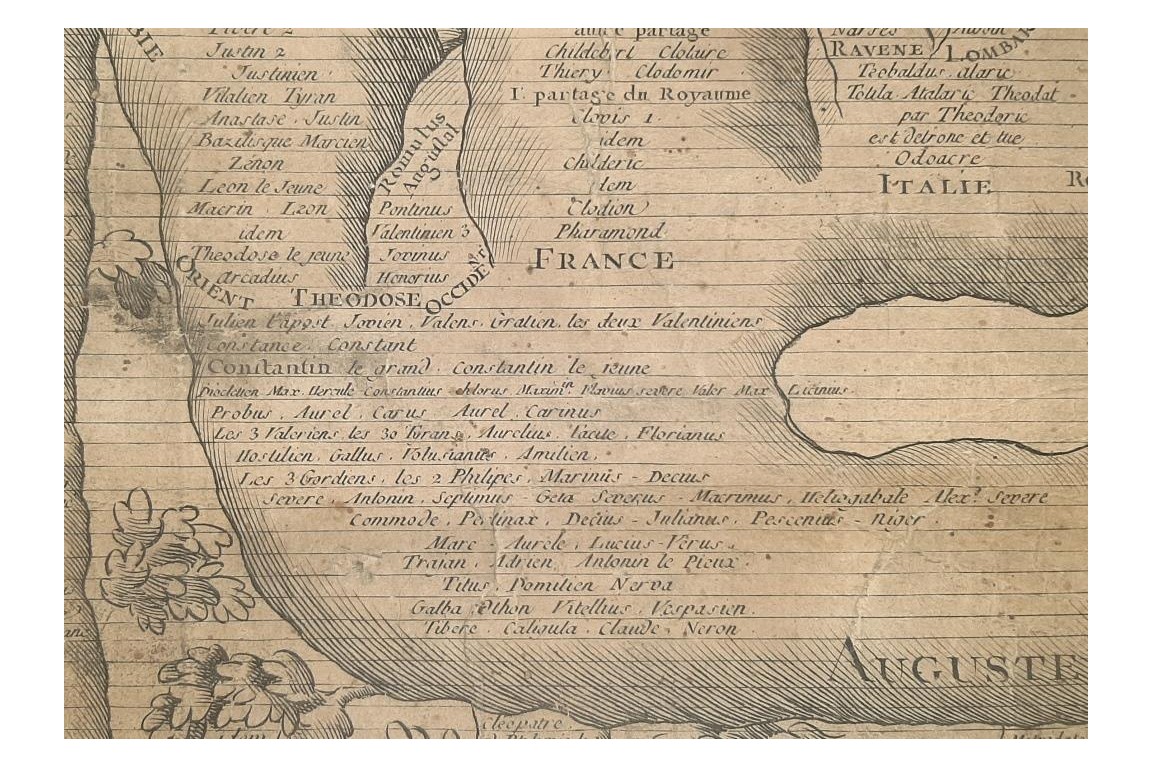 BIE
Tibere 2
Justin 2
Justinien
Vitalien Tyran
Anastase . Justin
Bazilisque Marcien
Zenon
Leon le Jeune
Macrin . Leon
idem
Theodose le jeune
Arcadius
ORIENT
THEODOSE
Romulus
Augustal
Pontinus
Valentinien 3
Jovinus
Honorius
OCCIDENT
autre partage
Childebert Clotaire
Thiery Clodomir
I. partage du Royaume
Clovis 1.
idem
Childeric
Idem
Clodion
Pharamond
FRANCE
Narses
RAVENE
LOMBAR
Teobaldus . alaric
Totila . Atalaric Theodat
par Theodoric
est detrone et tué
Odoacre
ITALIE
Julien l'apost . Jovien . Valens . Gratien . les deux Valentiniens
Constance . Constant
Constantin le grand . Constantin le jeune
Diocletien Max . Hercule Constantius chlorus Maximin Flavius severe Valer Max Licinius
Probus . Aurel . Carus Aurel . Carinus
Les 3 Valeriens . les 30 Tyrans . Aurelius . Tacite . Florianus
Hostilien . Gallus . Volusiantes . Amilien .
Les 3 Gordiens . les 2 Philipes . Marinus - Decius
Severe . Antonin . Septimus - Geta Severus - Macrimus . Heliogabale Alexr. Severe
Commode . Pertinax . Decius - Julianus . Pescenius - Niger .
Marc - Aurele . Lucius - Verus .
Traian . Adrien . Antonin le Pieux .
Titus . Domitien Nerva
Galba . Othon Vitellius . Vespasien .
Tibere . Caligula . Claude . Neron
AUGUSTE
Cleopatre